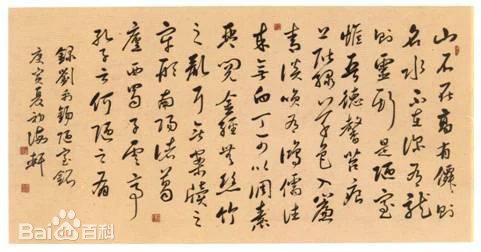 山不在高有僊則
名水不在深有龍
則靈斯是陋室
惟吾德馨苔痕
上階綠草色入簾
青談笑有鴻儒往
來無白丁可以調素
琴閱金經無絲竹
之亂耳無案牘之
勞形南陽諸葛
廬西蜀子雲亭
孔子云何陋之有
錄劉禹錫陋室銘
庚寅夏初海軒
Bai du 百科